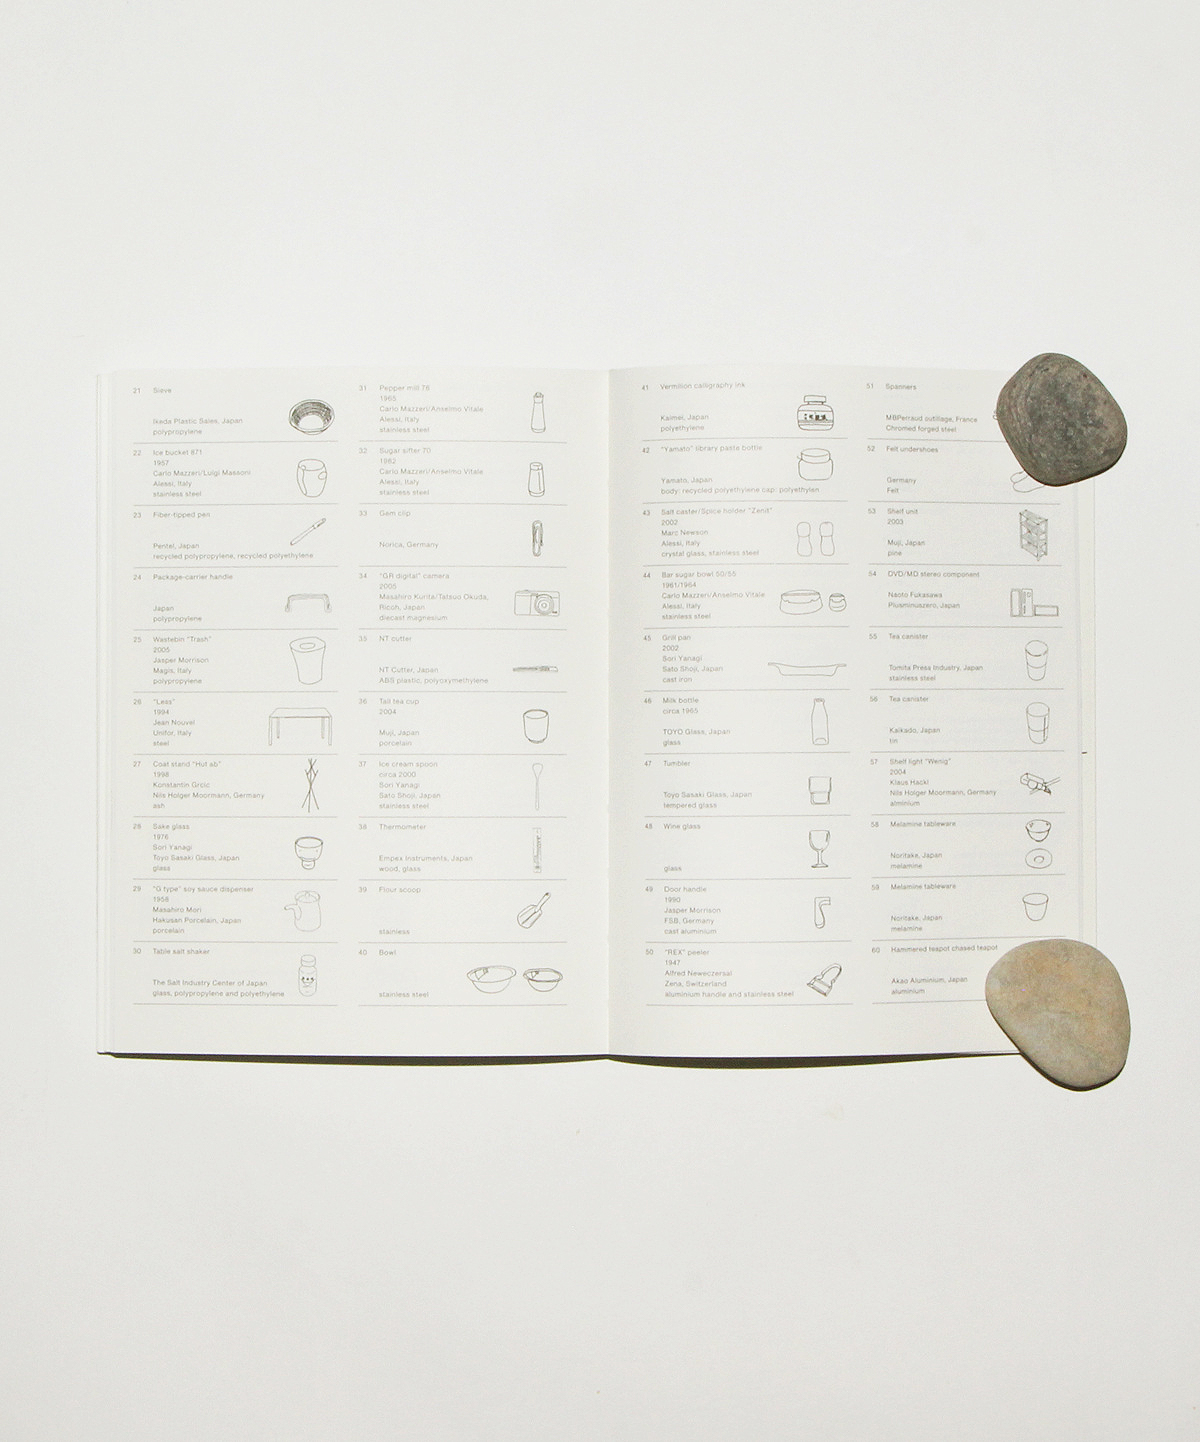 21 Sieve
Ikeda Plastic Sales, Japan
polypropylene
22 Ice bucket 871
1957
Carlo Mazzeri/Luigi Massoni
Alessi, Italy
stainless steel
23 Fiber-tipped pen
Pentel, Japan
recycled polypropylene, recycled polyethylene
24 Package-carrier handle
Japan
polypropylene
25 Wastebin "Trash"
2005
Jasper Morrison
Magis, Italy
polypropylene
26 "Less"
1994
Jean Nouvel
Unifor, Italy
steel
27 Coat stand "Hut ab"
1998
Konstantin Grcic
Nils Holger Moormann, Germany
ash
28 Sake glass
1976
Sori Yanagi
Toyo Sasaki Glass, Japan
glass
29 "G type" soy sauce dispenser
1958
Masahiro Mori
Hakusan Porcelain, Japan
porcelain
30 Table salt shaker
The Salt Industry Center of Japan
glass, polypropylene and polyethylene
31 Pepper mill 76
1965
Carlo Mazzeri/Anselmo Vitale
Alessi, Italy
stainless steel
32 Sugar sifter 70
1962
Carlo Mazzeri/Anselmo Vitale
Alessi, Italy
stainless steel
33 Gem clip
Norica, Germany
34 "GR digital" camera
2005
Masahiro Kurita/Tatsuo Okuda,
Ricoh, Japan
diecast magnesium
35 NT cutter
NT Cutter, Japan
ABS plastic, polyoxymethylene
36 Tall tea cup
2004
Muji, Japan
porcelain
37 Ice cream spoon
circa 2000
Sori Yanagi
Sato Shoji, Japan
stainless steel
38 Thermometer
Empex Instruments, Japan
wood, glass
39 Flour scoop
stainless
40 Bowl
stainless steel
41 Vermilion calligraphy ink
Kaimei, Japan
polyethylene
42 "Yamato" library paste bottle
Yamato, Japan
body: recycled polyethylene cap: polyethylen
43 Salt caster/Spice holder "Zenit"
2002
Marc Newson
Alessi, Italy
crystal glass, stainless steel
44 Bar sugar bowl 50/55
1961/1964
Carlo Mazzeri/Anselmo Vitale
Alessi, Italy
stainless steel
45 Grill pan
2002
Sori Yanagi
Sato Shoji, Japan
cast iron
46 Milk bottle
circa 1965
TOYO Glass, Japan
glass
47 Tumbler
Toyo Sasaki Glass, Japan
tempered glass
48 Wine glass
glass
49 Door handle
1990
Jasper Morrison
FSB, Germany
cast aluminium
50 "REX" peeler
1947
Alfred Neweczersal
Zena, Switzerland
aluminium handle and stainless steel
51 Spanners
MBPerraud outillage, France
Chromed forged steel
52 Felt undershoes
Germany
Felt
53 Shelf unit
2003
Muji, Japan
pine
54 DVD/MD stereo component
Naoto Fukasawa
Plusminuszero, Japan
55 Tea canister
Tomita Press Industry, Japan
stainless steel
56 Tea canister
Kaikado, Japan
tin
57 Shelf light "Wenig"
2004
Klaus Hackl
Nils Holger Moormann, Germany
alminium
58 Melamine tableware
Noritake, Japan
melamine
59 Melamine tableware
Noritake, Japan
melamine
60 Hammered teapot chased teapot
Akao Aluminium, Japan
aluminium